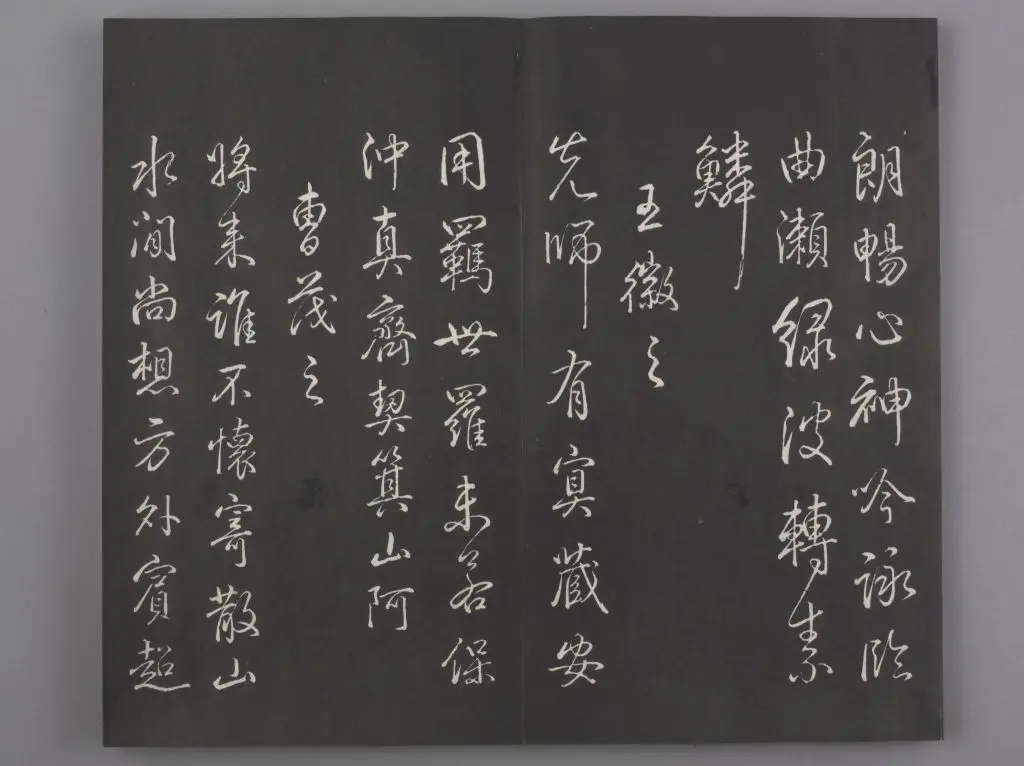 朗暢心神吟詠臨
曲瀨綠波轉素
鱗
王徽之
先師有冥藏安
用羈世羅未若保
沖真齊契箕山阿
曹茂之
將來誰不懷寄散山
水澗尚想方外賓超